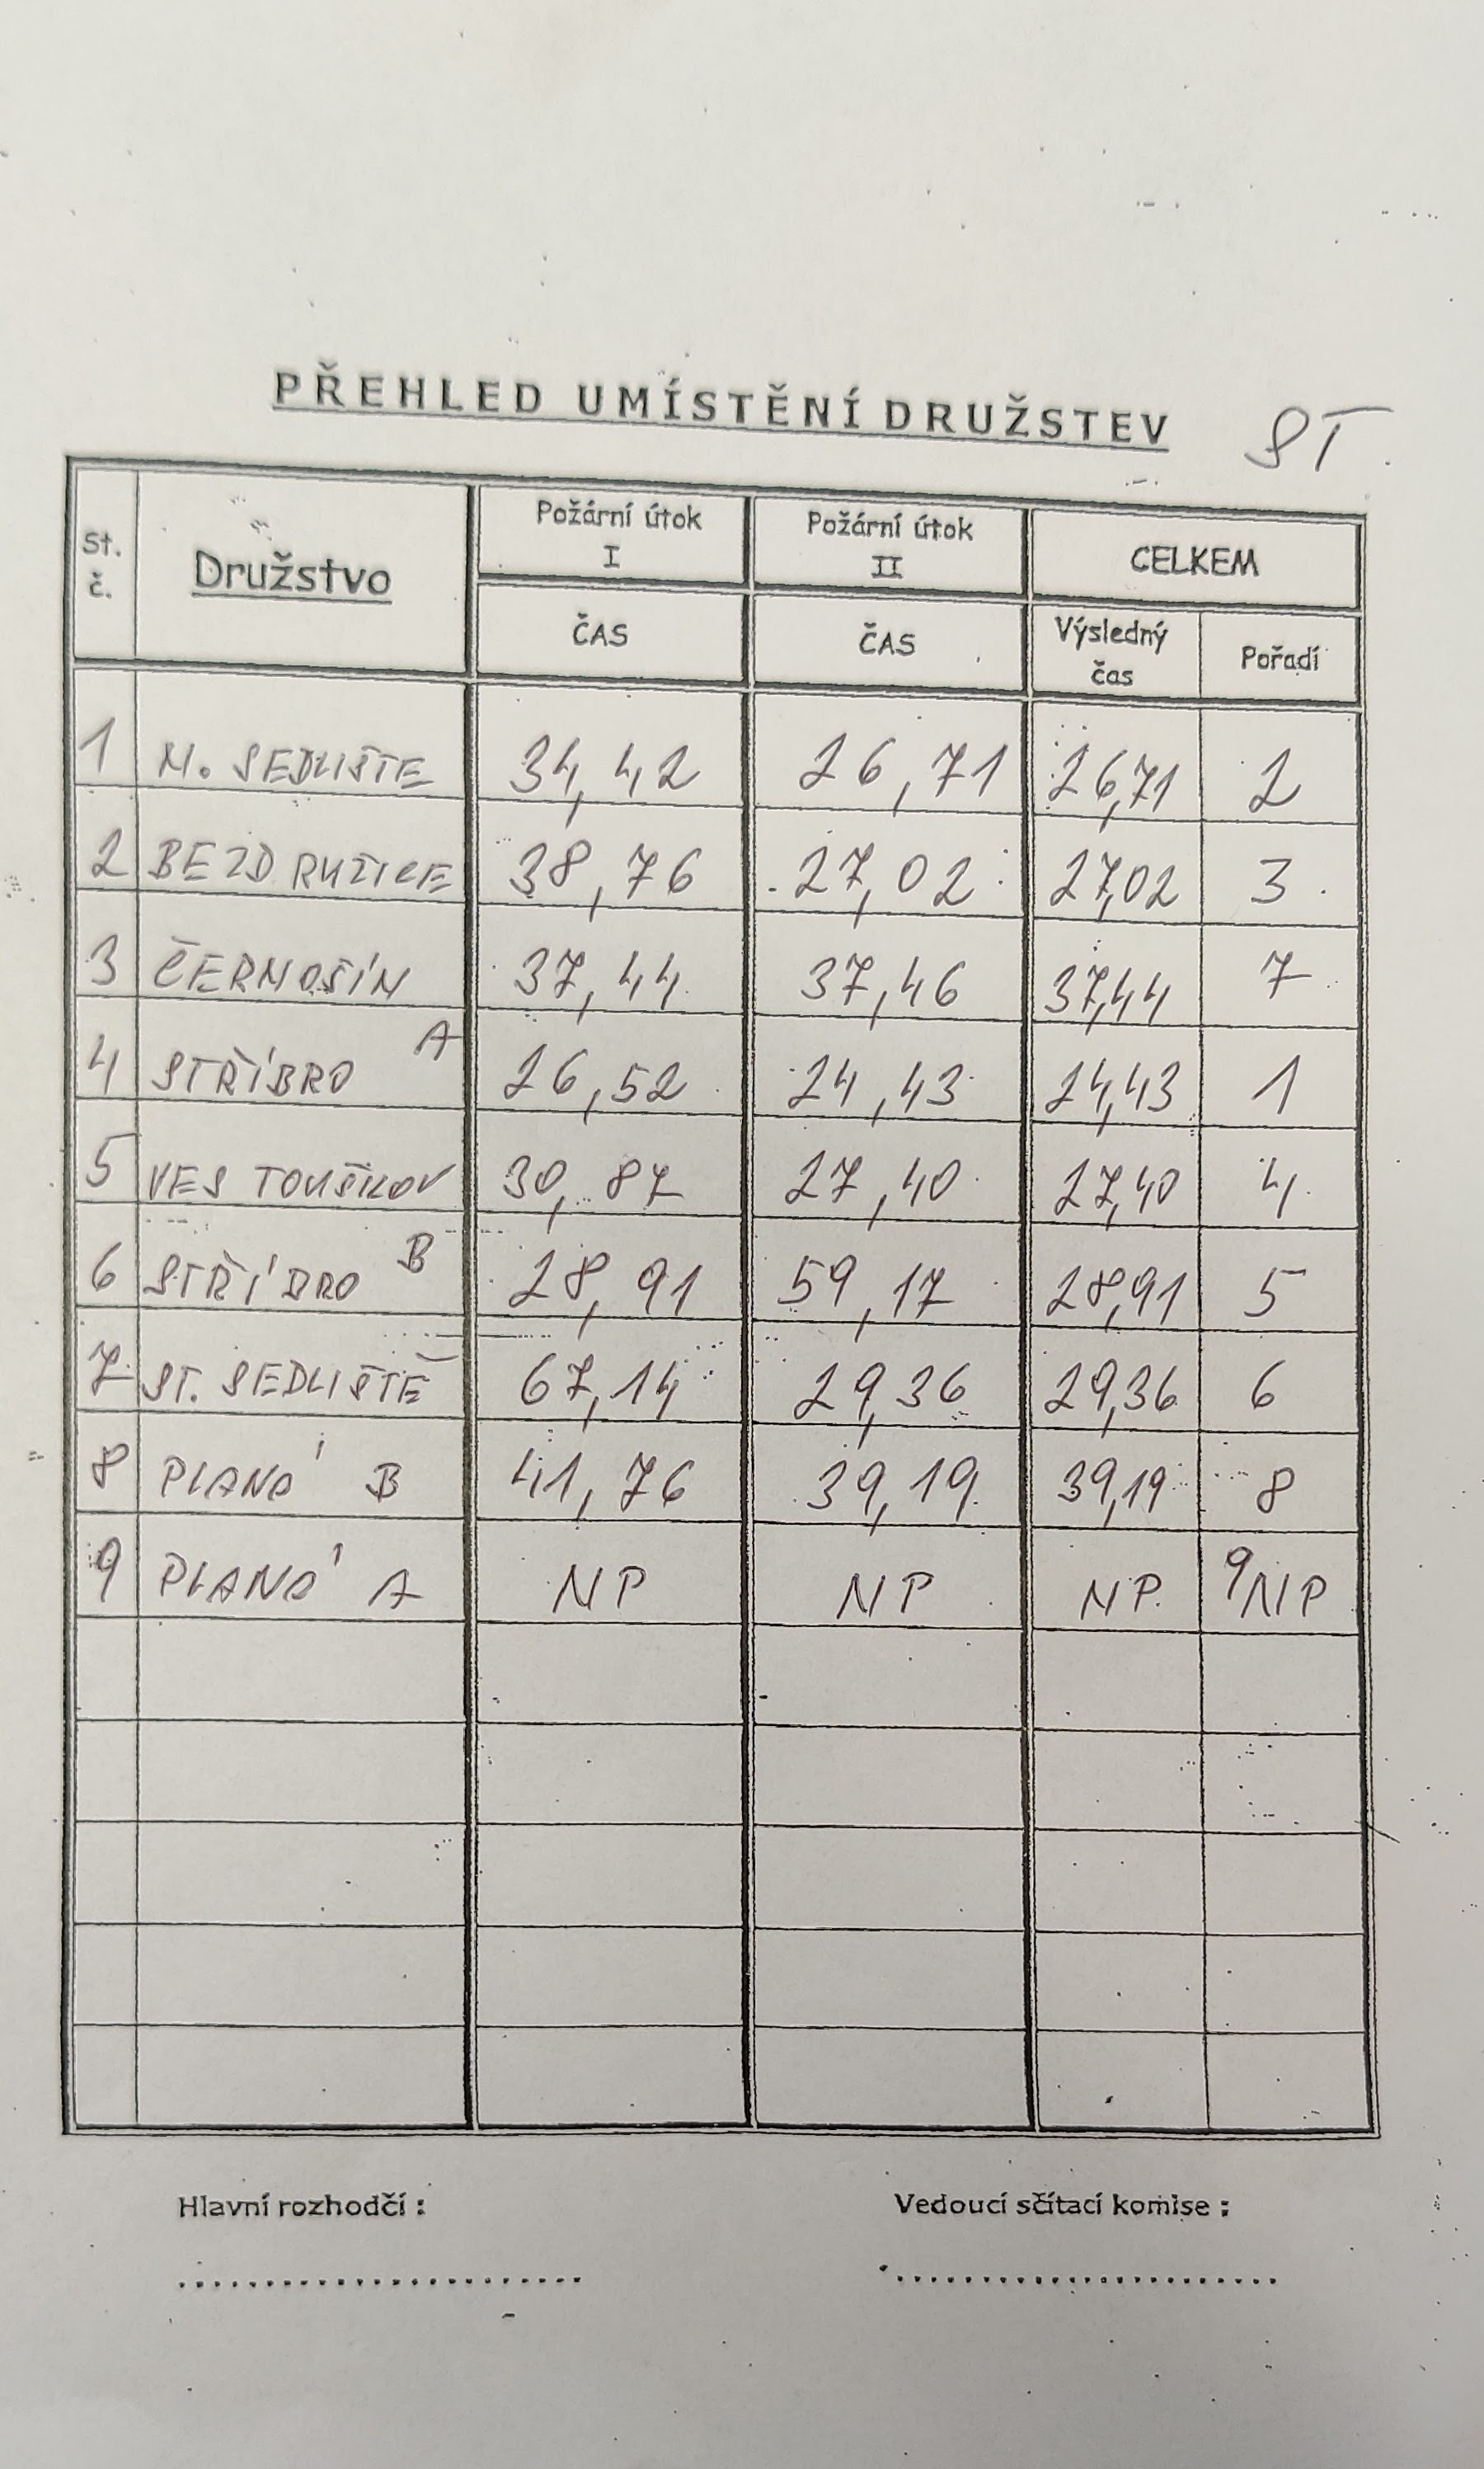 PŘEHLED UMÍSTĚNÍ DRUŽSTEV ST.
St. č. Družstvo Požární útok I Požární útok II CELKEM
ČAS ČAS Výsledný čas Pořadí
1 M. SEDLIŠTE 34,42 26,71 26,71 2
2 BEZDRUŽICE 38,76 27,02 27,02 3
3 ČERNOŠÍN 37,44 37,46 37,44 7
4 STŘÍBRO A 26,52 24,43 24,43 1
5 VES TOUŠKOV 30,87 27,40 27,40 4
6 STŘÍBRO B 28,91 59,17 28,91 5
7 ST. SEDLIŠTĚ 67,14 29,36 29,36 6
8 PLANÁ B 41,76 39,19 39,19 8
9 PLANÁ A NP NP NP 9/NP
Hlavní rozhodčí : Vedoucí sčítací komise :